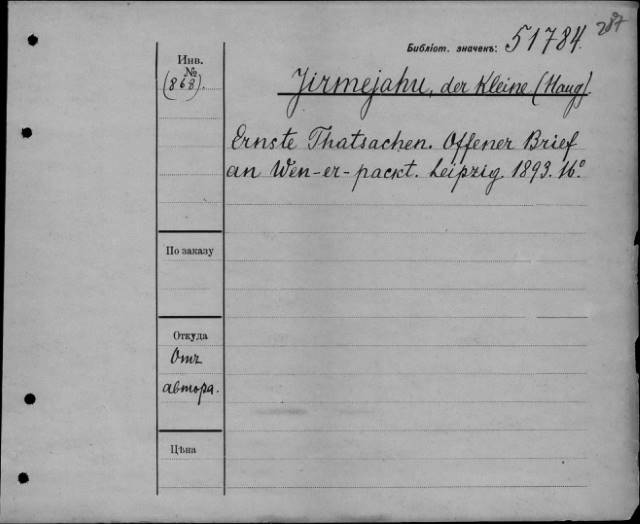 287
Библіот. значекъ: 51784.
Инв.
№
(868).
Jirmejahu, der Kleine (Haug).
Ernste Thatsachen. Offener Brief
an Wen-er-packt. Leipzig. 1893. 16°
По заказу
Откуда
Отъ
автора.
Цѣна